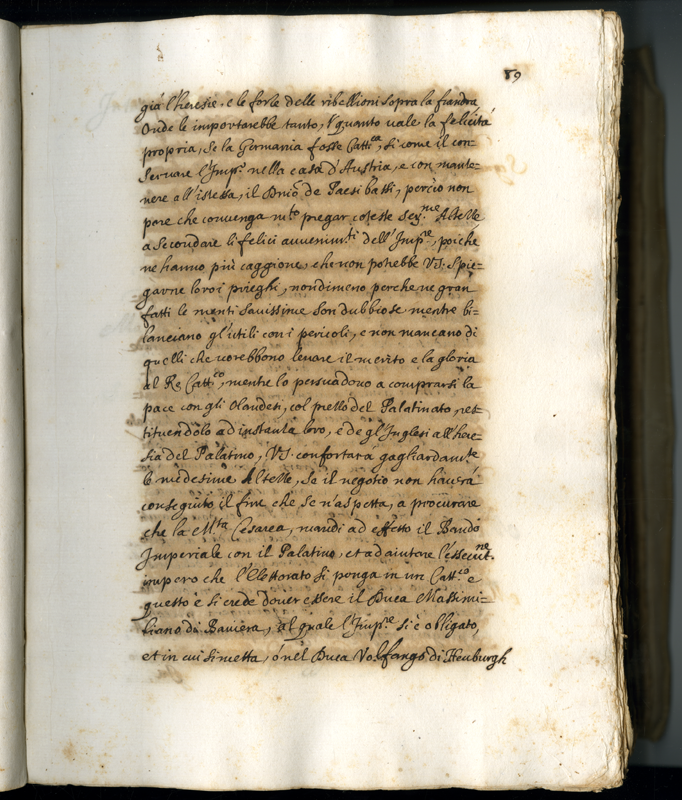 89
già l'heresie, e le forze delle ribellioni sopra la fiandra,
Onde le importarebbe tanto, quanto uale la felicità
propria, se la Germania fosse Catt.ca, si come il con=
seruare l'Imp.o nella casa d'Austria, e con mante=
nere all'istessa, il Dnio de Paesi bassi, perciò non
pare che conuenga m.to pregar coteste Ser.me Altezze
a secondare li felici auuenim.ti dell'Imp.re, poiche
ne hanno più caggione, che non potrebbe VS. spie=
garne loro i prieghi, nondimeno perche ne gran
fatti le menti sauissime son dubbiose mentre bi=
lanciano gl'utili con i pericoli, e non mancano di
quelli che uorebbono leuare il merito e la gloria
al Re Catt.co, mentre lo persuadono a comprarsi la
pace con gli Olandesi, col prezzo del Palatinato, res=
tituendolo ad instanza loro, e de gl'Inglesi all'here
sia del Palatino, VS. confortarà gagliardam.te
le medesime Altezze, se il negotio non hauerà
conseguito il fine che se n'aspetta, a procurare
che la M.tà Cesarea, mandi ad effetto il Bando
Imperiale con il Palatino, et ad aiutare l'essecut.ne
impero che l'Elettorato si ponga in un Catt.co e
questo è si crede douer essere il Duca Massimi=
liano di Bauiera, al quale l'Imp.re si è obligato,
et in cui si metta, ò nel Duca Volfango di Neuburgh